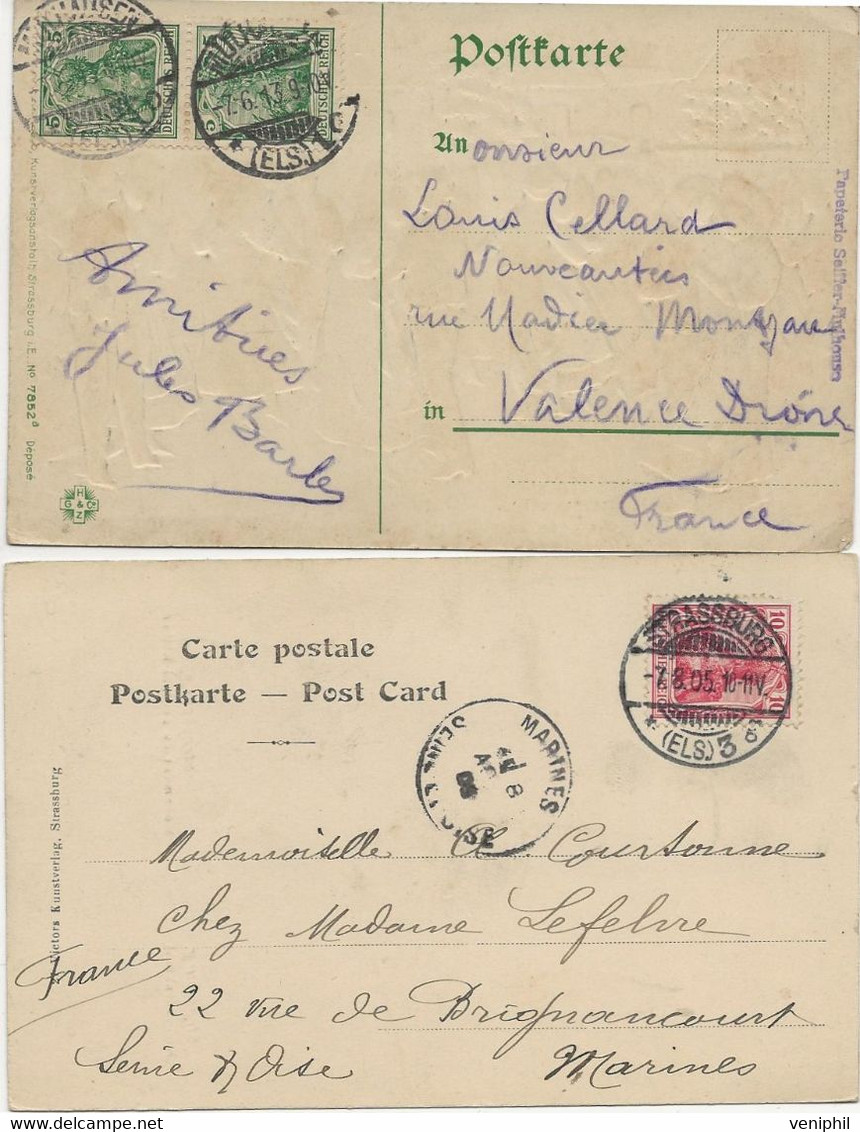 DEUTSCHES REICH
5
5
MÜLHAUSEN
-7.6.13.9-10
(ELS.)
Postkarte
Anonsieur
Louis Cellard
Nouveautés
rue Madier Montjau
in Valence Drôme
France
Amitiés
Jules Barbe
Kunstverlagsanstalt, Strassburg i.E. No 7852 Déposé
H
G & Co
Z
Papeterie Seiffer-Mulhouse
Carte postale
Postkarte — Post Card
10
10
STRASSBURG
-7.8.05.10-11V.
* (ELS.) 3
MARINES
8
SEINE ET OISE
Kunstverlag, Strassburg
Mademoiselle Cl. Courtonne
chez Madame Lefebvre
22 rue de Brignancourt
Seine & Oise Marines
France
veniphil